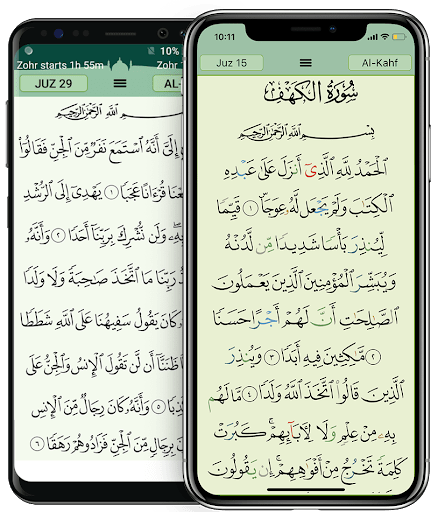 10%
Zohr starts 1h 55m
Zohr
JUZ 29
AL-
بِسْمِ ٱللَّهِ ٱلرَّحْمَٰنِ ٱلرَّحِيمِ
إِلَىَّ أَنَّهُ ٱسْتَمَعَ نَفَرٌ مِّنَ ٱلْجِنِّ فَقَالُوٓا۟
عْنَا قُرْءَانًا عَجَبًا ١ يَهْدِىٓ إِلَى ٱلرُّشْدِ
بِهِۦ ۖ وَلَن نُّشْرِكَ بِرَبِّنَآ أَحَدًا ٢ وَأَنَّهُۥ
رَبِّنَا مَا ٱتَّخَذَ صَٰحِبَةً وَلَا وَلَدًا
كَانَ يَقُولُ سَفِيهُنَا عَلَى ٱللَّهِ شَطَطًا
ظَنَنَّآ أَن لَّن تَقُولَ ٱلْإِنسُ وَٱلْجِنُّ عَلَى
ذِبًا ٥ وَأَنَّهُۥ كَانَ رِجَالٌ مِّنَ ٱلْإِنسِ
بِرِجَالٍ مِّنَ ٱلْجِنِّ فَزَادُوهُمْ رَهَقًا ٦
10:11
Juz 15
Al-Kahf
سُورَةُ الْكَهْفِ
بِسْمِ ٱللَّهِ ٱلرَّحْمَٰنِ ٱلرَّحِيمِ
ٱلْحَمْدُ لِلَّهِ ٱلَّذِىٓ أَنزَلَ عَلَىٰ عَبْدِهِ
ٱلْكِتَٰبَ وَلَمْ يَجْعَل لَّهُۥ عِوَجًا ۜ ١ قَيِّمًا
لِّيُنذِرَ بَأْسًا شَدِيدًا مِّن لَّدُنْهُ
وَيُبَشِّرَ ٱلْمُؤْمِنِينَ ٱلَّذِينَ يَعْمَلُونَ
ٱلصَّٰلِحَٰتِ أَنَّ لَهُمْ أَجْرًا حَسَنًا
٢ مَّٰكِثِينَ فِيهِ أَبَدًا ٣ وَيُنذِرَ
ٱلَّذِينَ قَالُوا۟ ٱتَّخَذَ ٱللَّهُ وَلَدًا ٤ مَّا لَهُم
بِهِۦ مِنْ عِلْمٍ وَلَا لِـَٔابَآئِهِمْ ۚ كَبُرَتْ
كَلِمَةً تَخْرُجُ مِنْ أَفْوَٰهِهِمْ ۚ إِن يَقُولُونَ